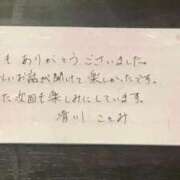 もありがとうございました。
いお話が聞けて楽しかったです。
た次回も楽しみにしています。
滑川 ことみ